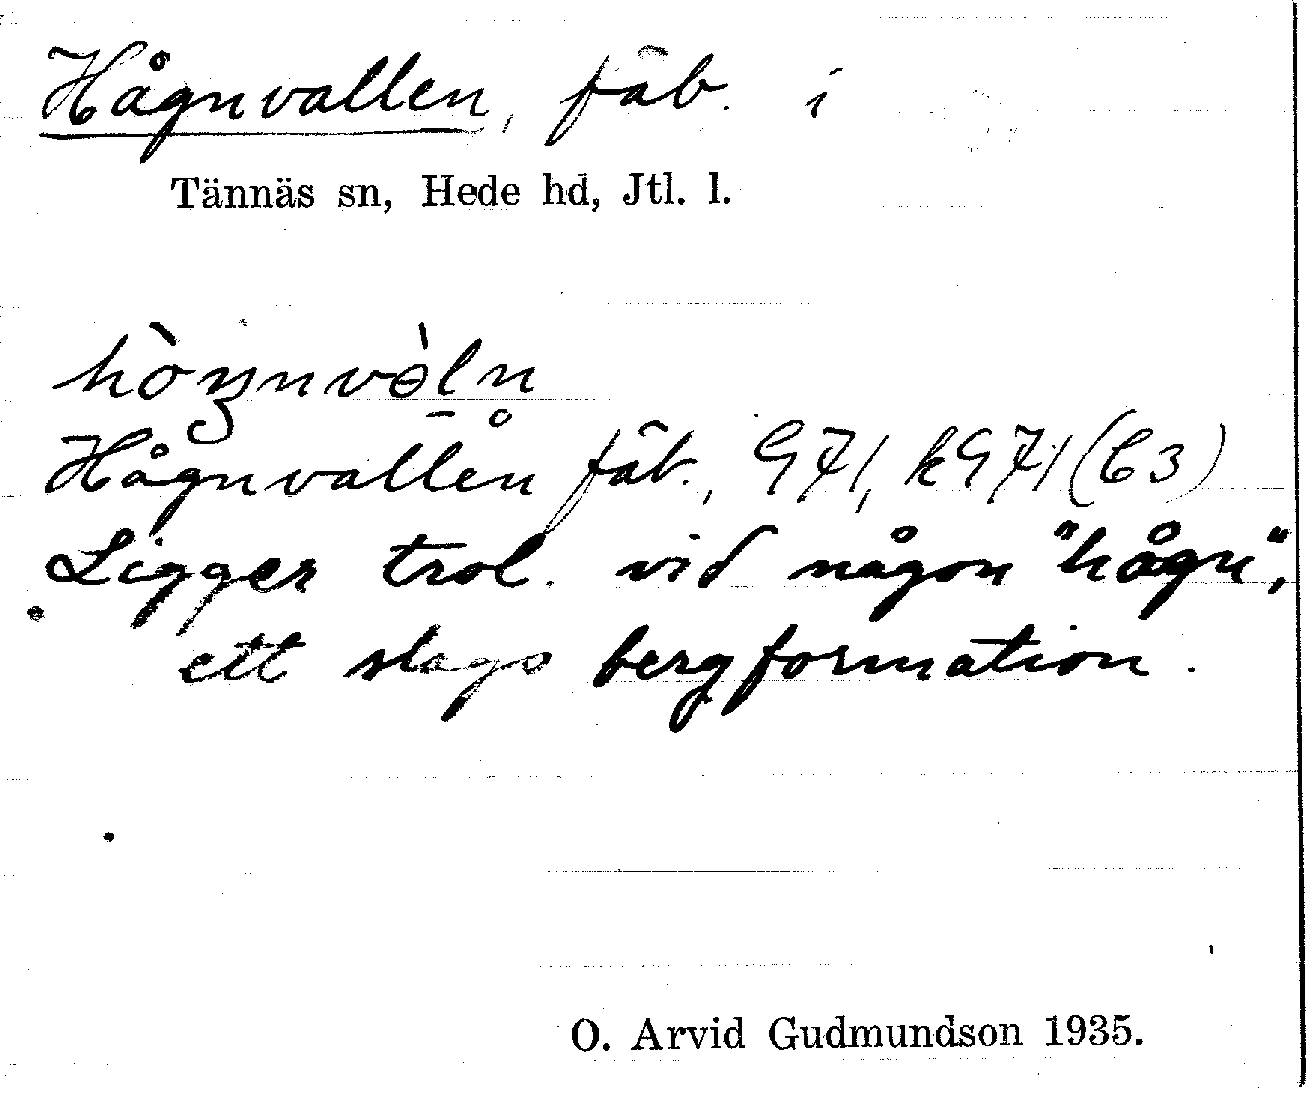 Hågnvallen, fäb. i
Tännäs sn, Hede hd, Jtl. l.
Hågnvallen fäb., G 71, k G 71 (C3)
Ligger trol. vid någon "hågn",
ett slags bergformation.
O. Arvid Gudmundson 1935.